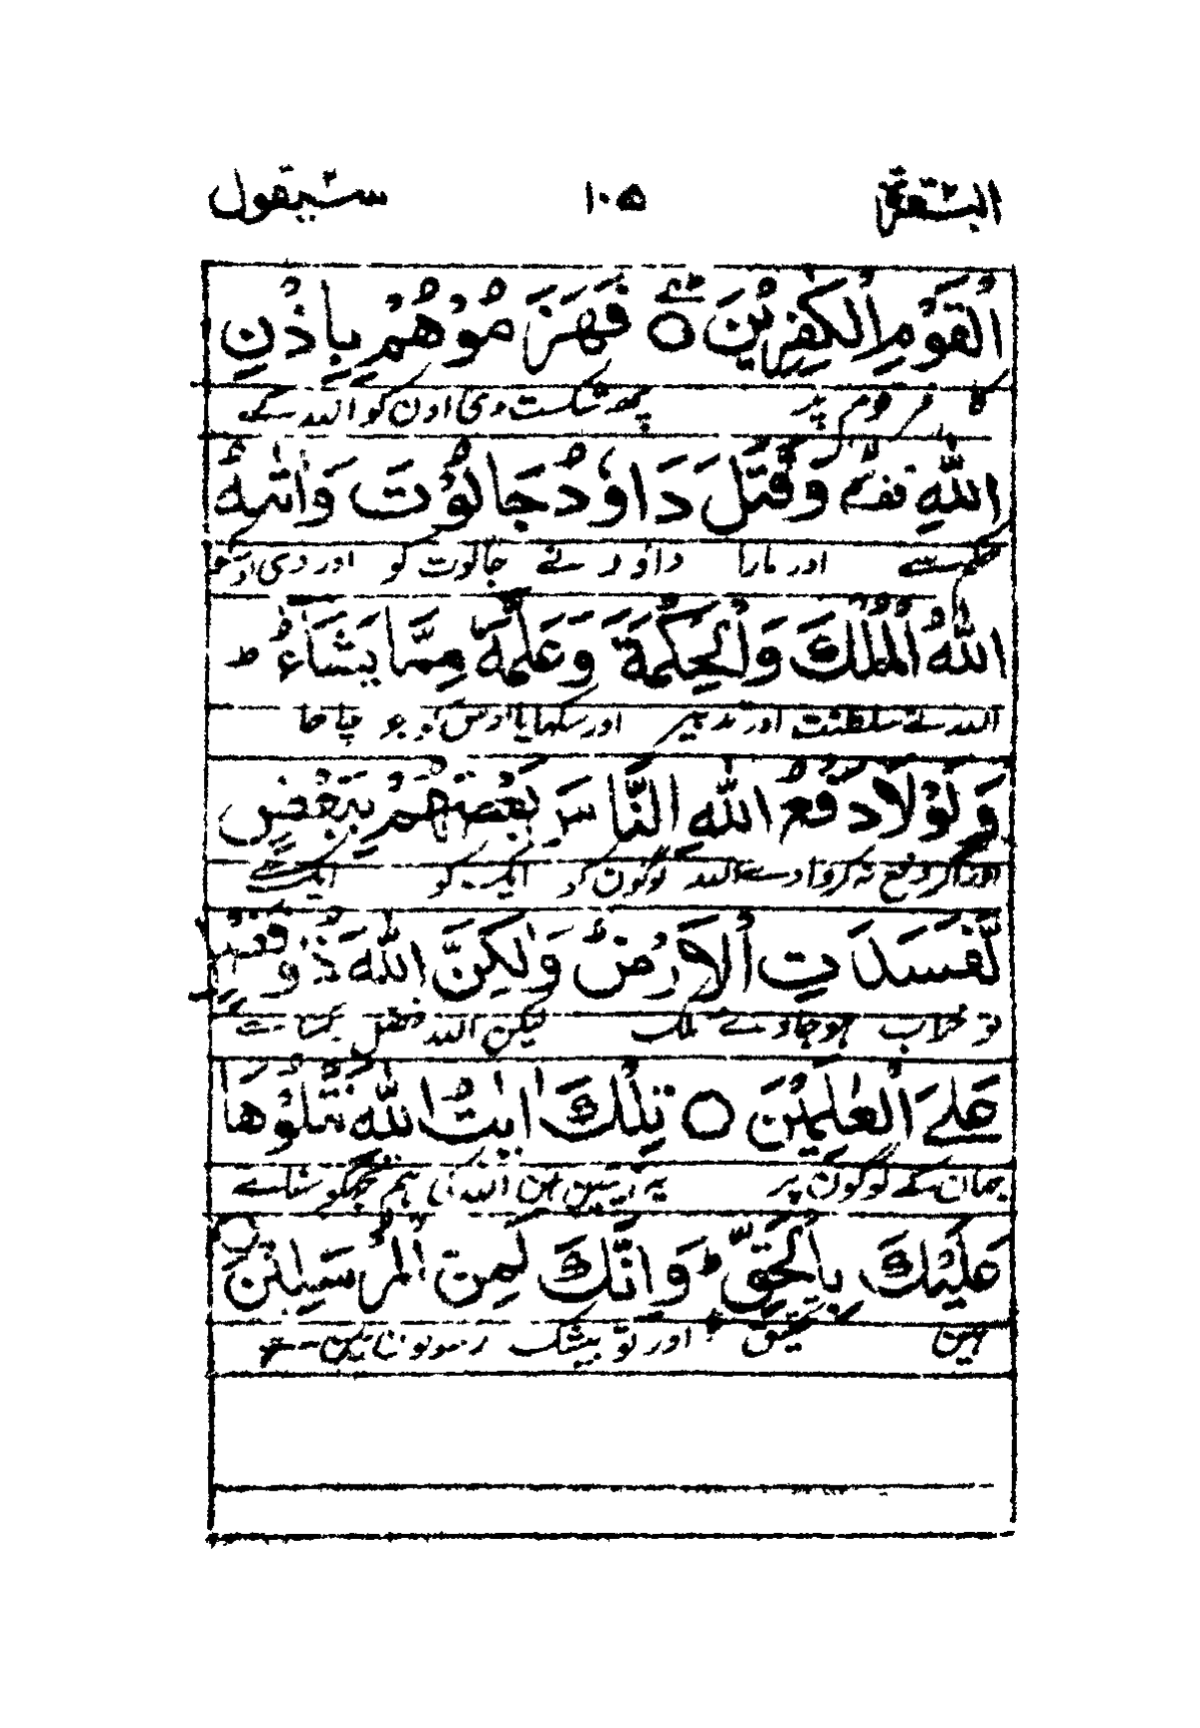 البقرة ١٠٥ سيقول
الْقَوْمِ الْكٰفِرِيْنَ ○ فَهَزَمُوْهُمْ بِاِذْنِ
کافر قوم پر پھر شکست دی اون کو اللہ کے
اللّٰهِ وَقَتَلَ دَاوٗدُ جَالُوْتَ وَاٰتٰىهُ
حکم سے اور مارا داود نے جالوت کو اور دی
اللّٰهُ الْمُلْكَ وَالْحِكْمَةَ وَعَلَّمَهٗ مِمَّا يَشَآءُ ط
اللہ نے سلطنت اور تدبیر اور سکھایا اوس کو جو چاہا
وَلَوْلَا دَفْعُ اللّٰهِ النَّاسَ بَعْضَهُمْ بِبَعْضٍ
اور اگر دفع نہ کروادے اللہ لوگون کو ایک کو ایک سے
لَّفَسَدَتِ الْاَرْضُ وَلٰكِنَّ اللّٰهَ ذُوْ فَضْلٍ
تو خراب ہوجاوے ملک لیکن اللہ فضل رکھتا ہے
عَلَى الْعٰلَمِيْنَ ○ تِلْكَ اٰيٰتُ اللّٰهِ نَتْلُوْهَا
جہان کے لوگون پر یہ آیتین ہین اللہ کی ہم تجھکو سناتے
عَلَيْكَ بِالْحَقِّ ط وَاِنَّكَ لَمِنَ الْمُرْسَلِيْنَ ○
ہین تحقیق اور تو بیشک رسولون مین ہے